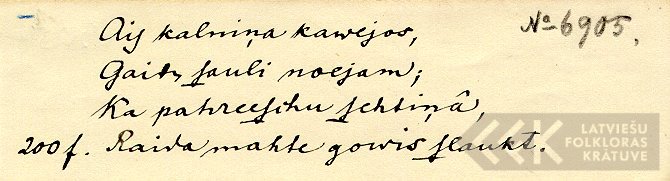 Aiſ kalniņa kawejos, № 6905.
Gaidu ſauli noejam;
Ka pahreeſchu ſehtiņâ,
200f. Raida mahte gowis ſlaukt.
LATVIEŠU
FOLKLORAS
KRĀTUVE